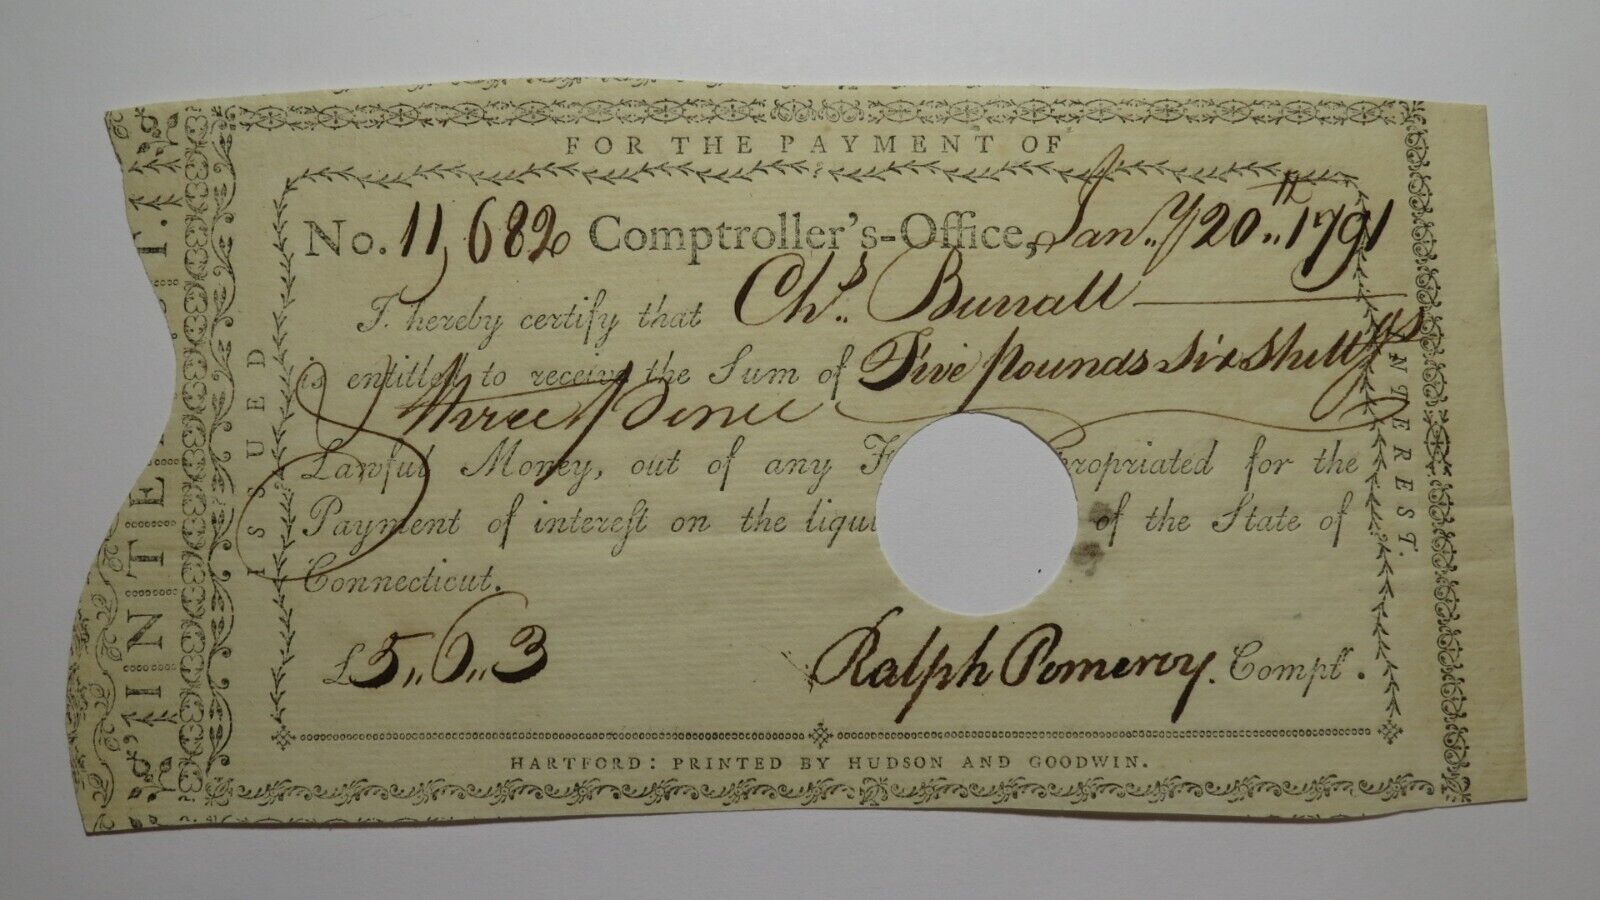 FOR THE PAYMENT OF
No. 11,682 Comptroller's-Office, Jan.y 20.th 1791
I hereby certify that Chs. Burrall
is entitled to receive the Sum of Five pounds six shillgs
three pence
Lawful Money, out of any F ropriated for the
Payment of intereſt on the liqui of the State of
Connecticut.
£5,,6,,3 Ralph Pomeroy. Compt.
HARTFORD: PRINTED BY HUDSON AND GOODWIN.
ISSUED
INTEREST.
INTE T.